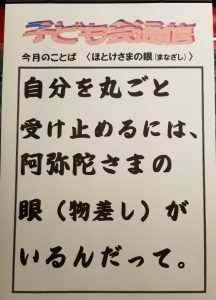 子ども会通信
今月のことば 〈ほとけさまの眼(まなざし)〉
自分を丸ごと
受け止めるには、
阿弥陀さまの
眼(物差し)が
いるんだって。